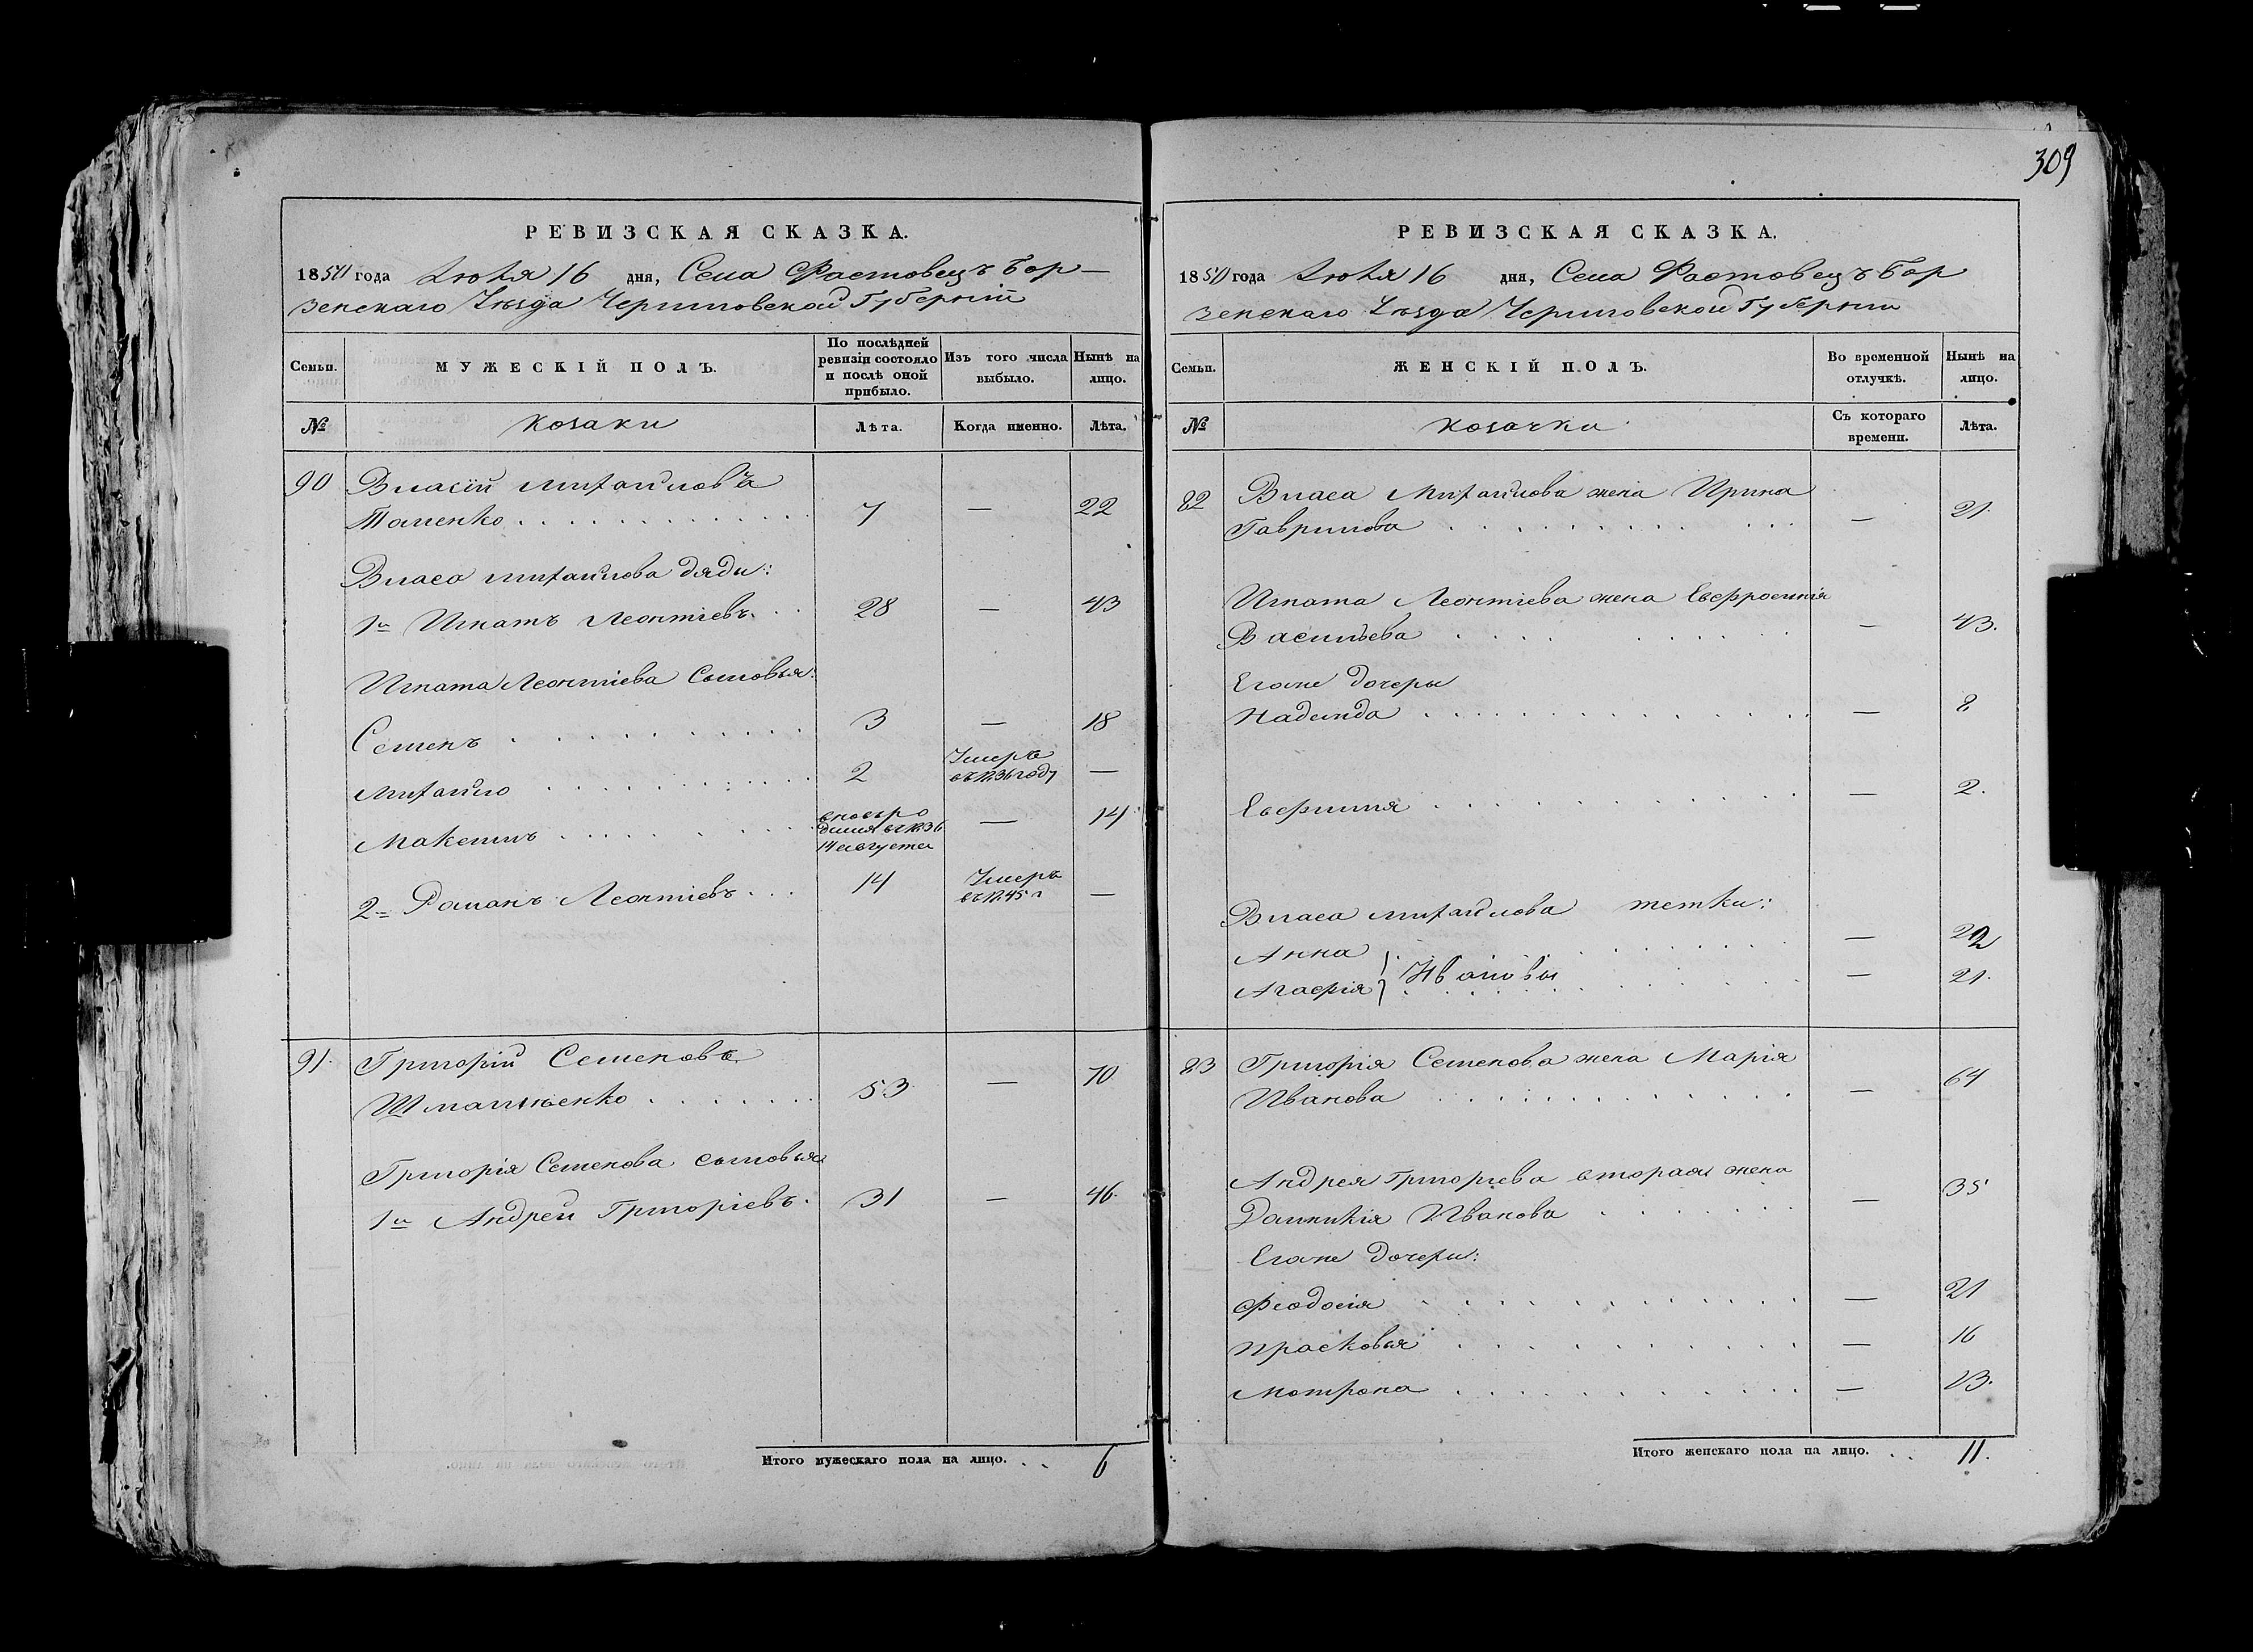 309
РЕВИЗСКАЯ СКАЗКА.
1850 года Іюля 16 дня, Села Фастовецъ Бор-
зенскаго Уѣзда Черниговской Губерніи
Семьи. МУЖЕСКІЙ ПОЛЪ. По послѣдней ревизіи состояло и послѣ оной прибыло. Изъ того числа выбыло. Нынѣ на лицо.
№ Козаки Лѣта. Когда именно. Лѣта.
90 Власій Михайловъ
7 — 22
Власа Михайлова дяди:
1й Игнатъ Леонтіевъ 28 — 43
Игната Леонтіева сыновья:
Семенъ 3 — 18
Михайло 2 Умеръ въ 1836 году —
Максимъ вновь родился въ 1836 14 августа — 14
2= Романъ Леонтіевъ 14 Умеръ въ 1845 г —
91. Григорій Семеновъ
53 — 70
Григорія Семенова сыновья
1й Андрей Григоріевъ 31 — 46
Итого мужескаго пола на лицо. 6
РЕВИЗСКАЯ СКАЗКА.
1850 года Іюля 16 дня, Села Фастовецъ Бор
зенскаго Уѣзда Черниговской Губерніи
Семьи. ЖЕНСКІЙ ПОЛЪ. Во временной отлучкѣ. Нынѣ на лицо.
№ Козачки Съ котораго времени. Лѣта.
82 Власа Михайлова жена Ирина
Гаврилова — 21
Игната Леонтіева жена Евфросинія
Васильева — 43.
Егоже дочеры
Надежда — 8
Евфимия — 2.
Власа Михайлова тетки:
Анна — 22
Агафія } Ивановы — 21.
83 Григорія Семенова жена Марія
Иванова — 64
Андрея Григорьева вторая жена
Домникія Иванова — 35
Егоже дочери:
Феодосія — 21
Прасковья — 16
Мотрона — 13.
Итого женскаго пола на лицо. 11.